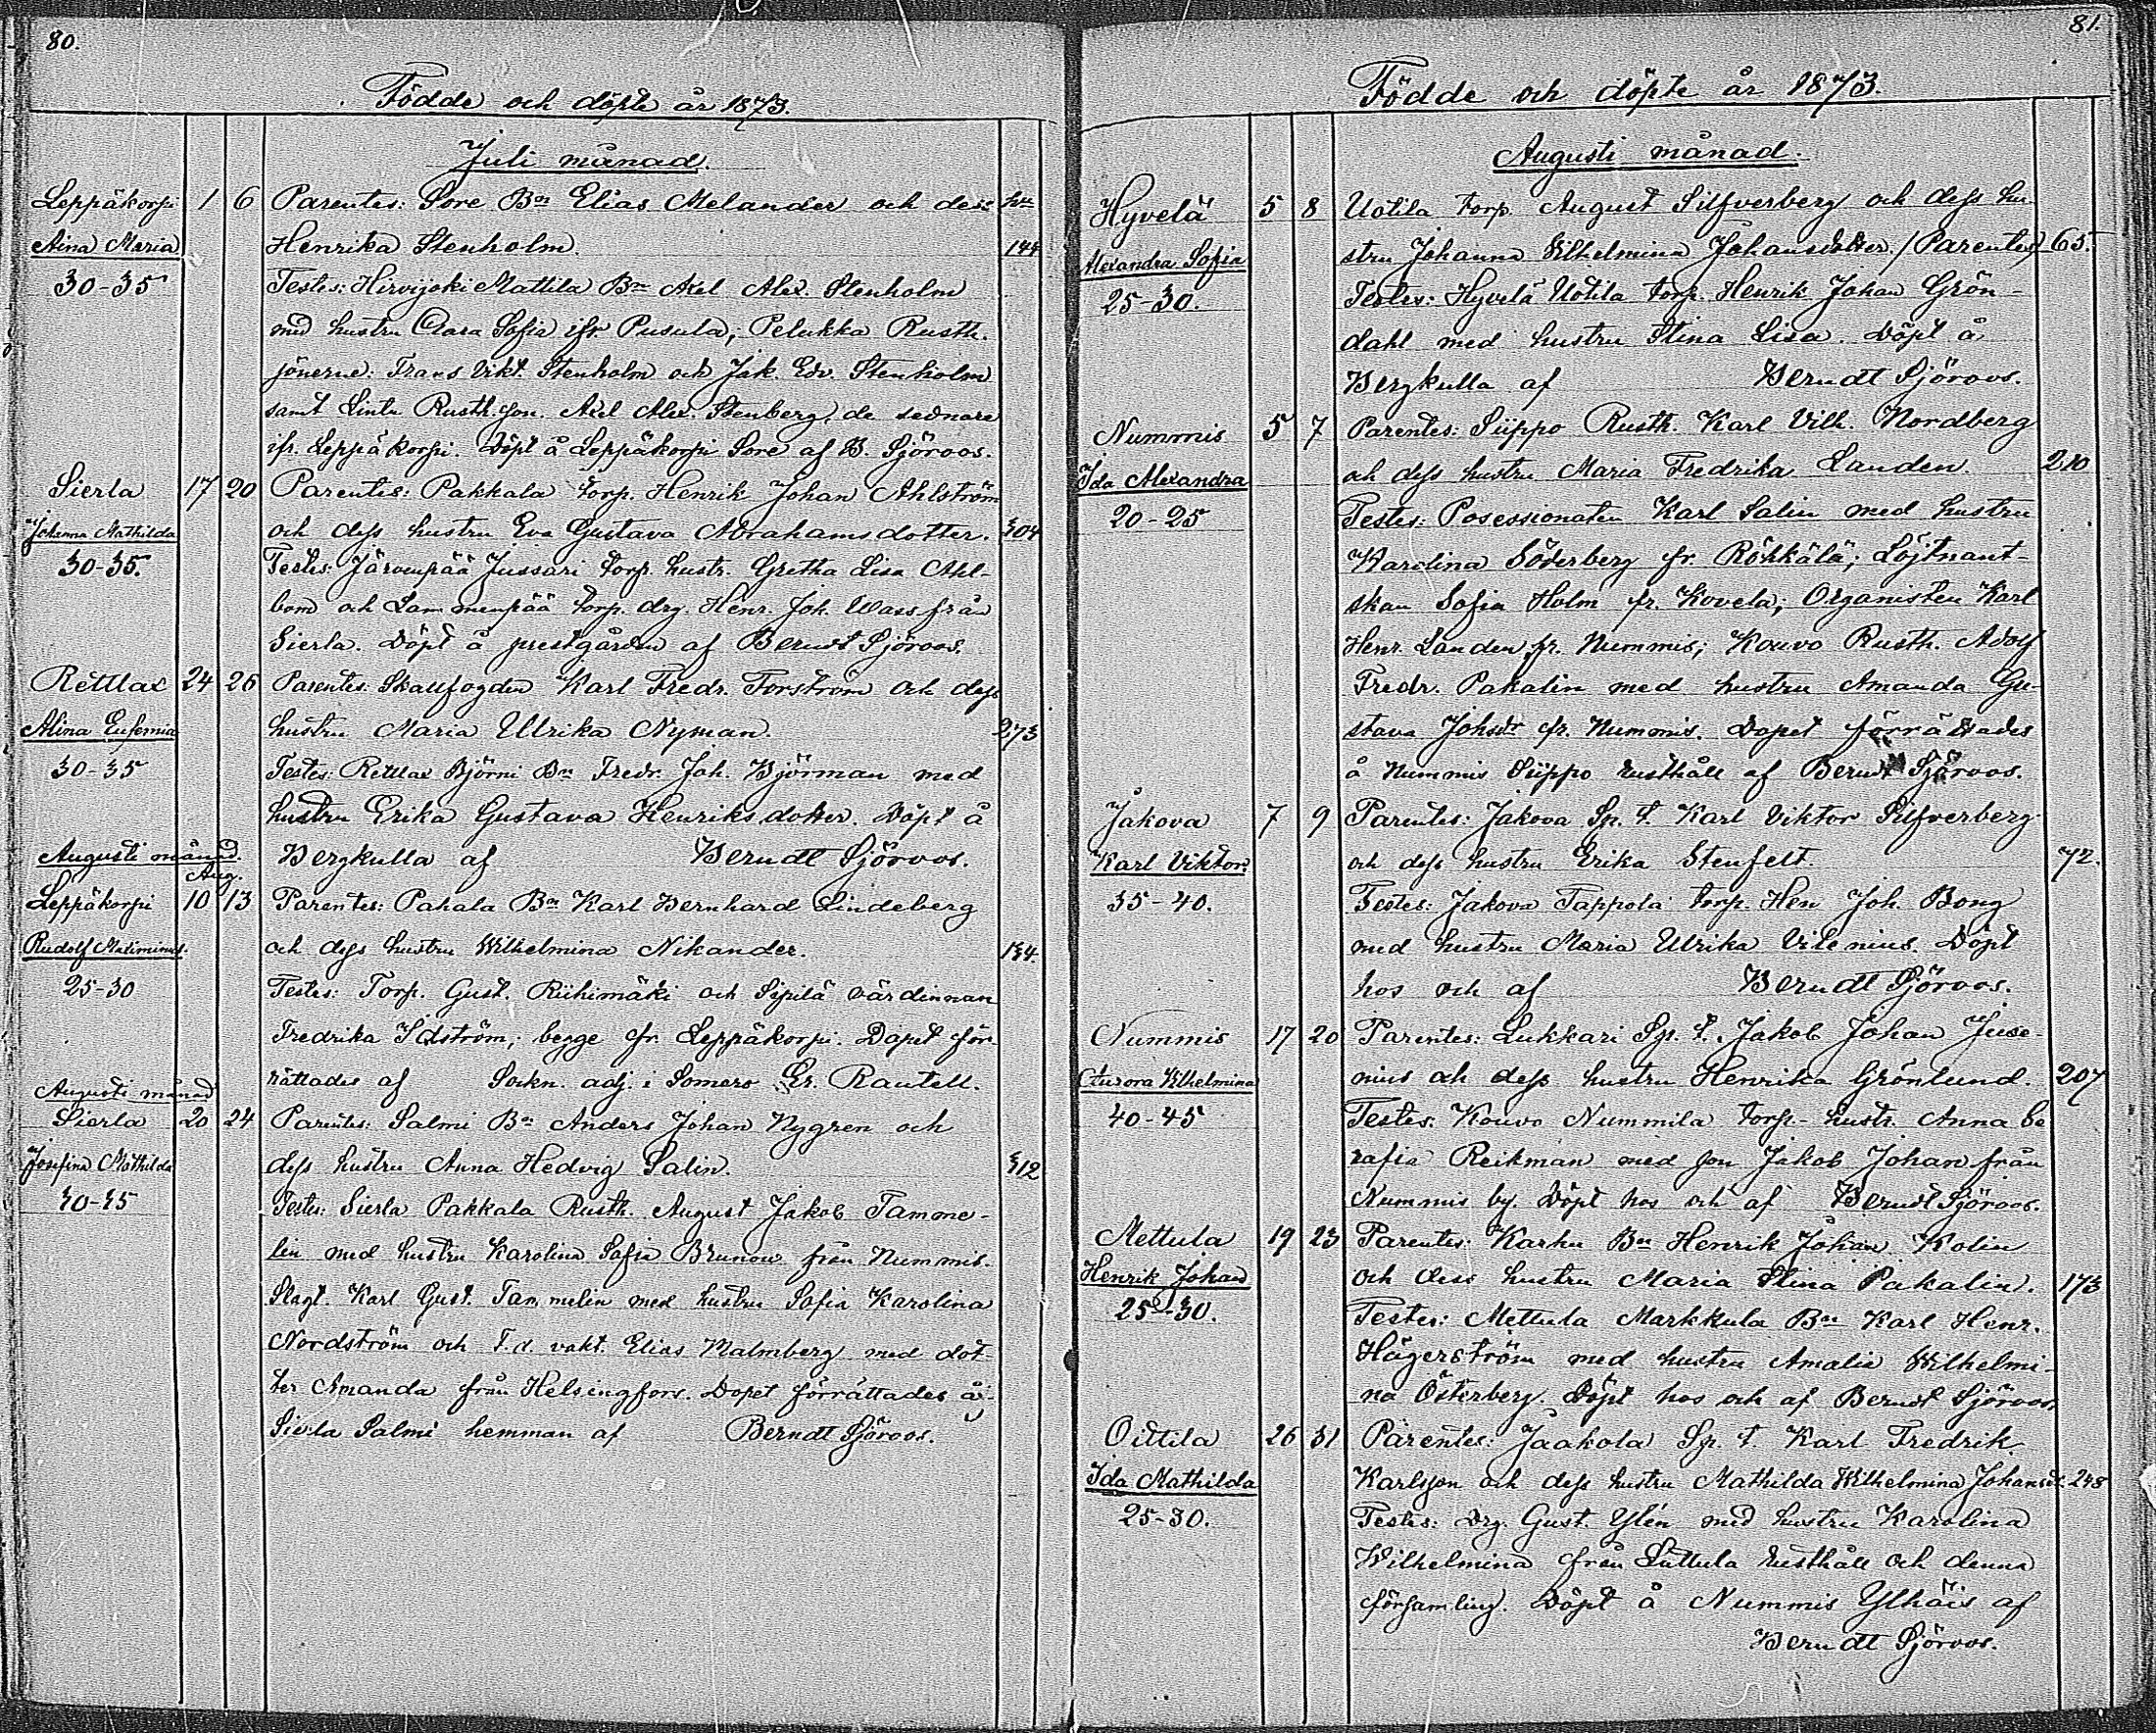 80.
Födde och döpte år 1873.
Juli månad.
Leppäkorpi 1 6 Parentes: Sore Bn Elias Melander och dess hu
Aina Maria Henrika Stenholm. 144
30-35 Testes: Hirvijoki Mattila Bn Axel Alex. Stenholm
med hustru Clara Sofia ifr. Pusula; Pelukka Rusth.
sönerne: Frans Vikt. Stenholm och Jak. Edv. Stenholm
samt Rusth. son. Axel Alex. Stenberg, de sednare
ifr. Leppäkorpi. Döpt å Leppäkorpi Sore af B. Sjöroos.
Sierla 17 20 Parentes: Pakkala torp. Henrik Johan Ahlström
Johanna Mathilda och dess hustru Eva Gustava Abrahamsdotter. 304
30-35. Testes: Järvenpää Jussari torp. hustr. Gretha Lisa Ahl-
bom och Lammenpää torp. drg. Henr. Joh. Wass från
Sierla. Döpt å prestgården af Berndt Sjöroos.
Rettlax 24 26 Parentes: Skallfogden Karl Fredr. Forström och dess
Alina Eufemia hustru Maria Ulrika Nyman. 273
30-35 Testes: Rettlax Björni Bn Fredr. Joh. Björman med
hustru Erika Gustava Henriksdotter. Döpt å
Bergkulla af Berndt Sjöroos.
Augusti månad.
Aug.
Leppäkorpi 10 13 Parentes: Pahala Bn Karl Bernhard Lindeberg
Rudolf och dess hustru Wilhelmina Nikander. 134.
25-30 Testes: Torp. Gust. Riihimäki och Sipilä värdinnan
Fredrika Idström; begge fr. Leppäkorpi. Dopet för
rättades af Sockn. adj. i Somero Er. Rautell.
Augusti månad
Sierla 20 24 Parentes: Salmi Bn Anders Johan Nygren och
Josefina Mathilda dess hustru Anna Hedvig Salin. 312
40-45 Testes: Sierla Pakkala Rusth. August Jakob Tamme-
lin med hustru Karolina Sofia Brunow från Nummis.
Slagt. Karl Gust. Tammelin med hustru Sofia Karolina
Nordström och F.d. vakt. Elias Malmberg med dot
ter Amanda från Helsingfors. Dopet förrättades å
Sierla Salmi hemman af Berndt Sjöroos.
81.
Födde och döpte år 1873.
Augusti månad.
Hyvelä 5 8 Uotila torp. August Silfverberg och dess hu-
Alexandra Sofia stru Johanna Vilhelmina Johansdotter. (Parentes) 65.
25-30. Testes: Hyvelä Uotila torp. Henrik Johan Grön-
dahl med hustru Stina Lisa. Döpt å
Bergkulla af Berndt Sjöroos.
Nummis 5 7 Parentes: Siippo Rusth. Karl Vilh. Nordberg
Ida Alexandra och dess hustru Maria Fredrika Landen. 210
20-25 Testes: Posessionaten Karl Salin med hustru
Karolina Söderberg fr. Röhkälä; Löjtnant-
skan Sofia Holm fr. Kovela; Organisten Karl
Henr. Landen fr. Nummis; Kouvo Rusth. Adolf
Fredr. Pakalin med hustru Amanda Gu-
stava Johsdr fr. Nummis. Dopet förrättades
å Nummis Siippo Rusthåll af Berndt Sjöroos.
Jakova 7 9 Parentes: Jakova Sp. t. Karl Viktor Silfverberg
Karl Viktor och dess hustru Erika Stenfelt. 72.
35-40. Testes: Jakova Tappola torp. Hen Joh. Bong
med hustru Maria Ulrika Vilenius. Döpt
hos och af Berndt Sjöroos.
Nummis 17 20 Parentes: Lukkari Sp. t. Jakob Johan Juse-
Aurora Vilhelmina nius och dess hustru Henrika Grönlund. 207
40-45 Testes. Kouvo Nummila torp.-hustr. Anna Se
rafia Reikman med son Jakob Johan från
Nummis by. Döpt hos och af Berndt Sjöroos.
Mettula 19 23 Parentes: Karhu Bn Henrik Johan Kolin
Henrik Johan och dess hustru Maria Stina Pakalin. 173
25-30. Testes: Mettula Markkula Bn Karl Henr.
Hägerström med hustru Amalia Wilhelmi-
na Österberg. Döpt hos och af Berndt Sjöroos.
Oittila 26 31 Parentes: Jaakola Sp. t. Karl Fredrik
Ida Mathilda Karlsson och dess hustru Mathilda Wilhelmina Johansd. 248
25-30. Testes: Drg. Gust. Ylén med hustru Karolina
Wilhelmina från Luttula Rusthåll och denna
församling. Döpt å Nummis Ylhäis af
Berndt Sjöroos.